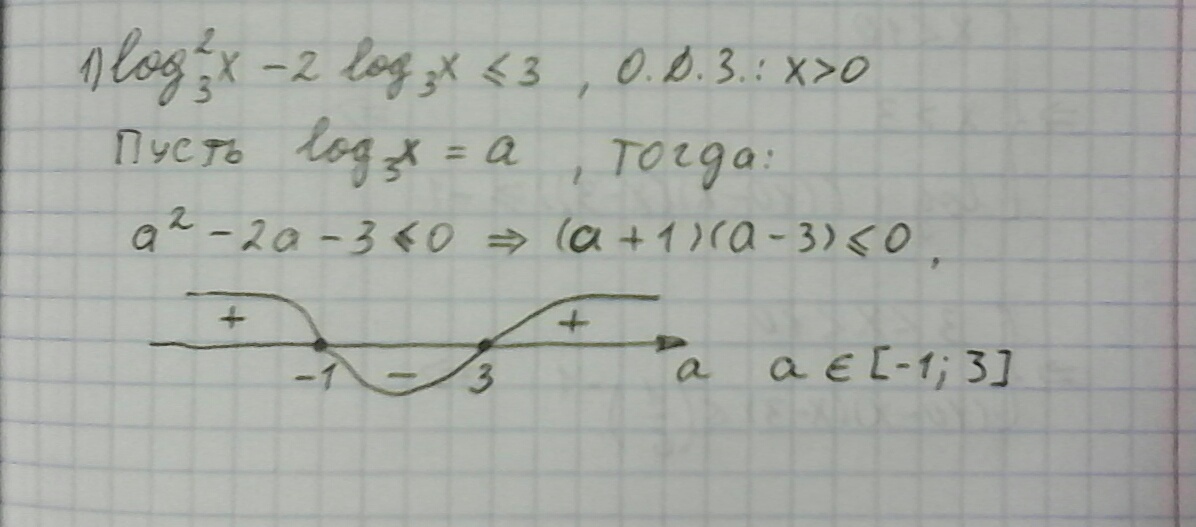 1) log₃²x - 2 log₃x ≤ 3 , О.Д.З.: x>0
Пусть log₃x = a , тогда:
a² - 2a - 3 ≤ 0 ⇒ (a + 1)(a - 3) ≤ 0 ,
+ +
-1 - 3 a a ∈ [-1; 3]